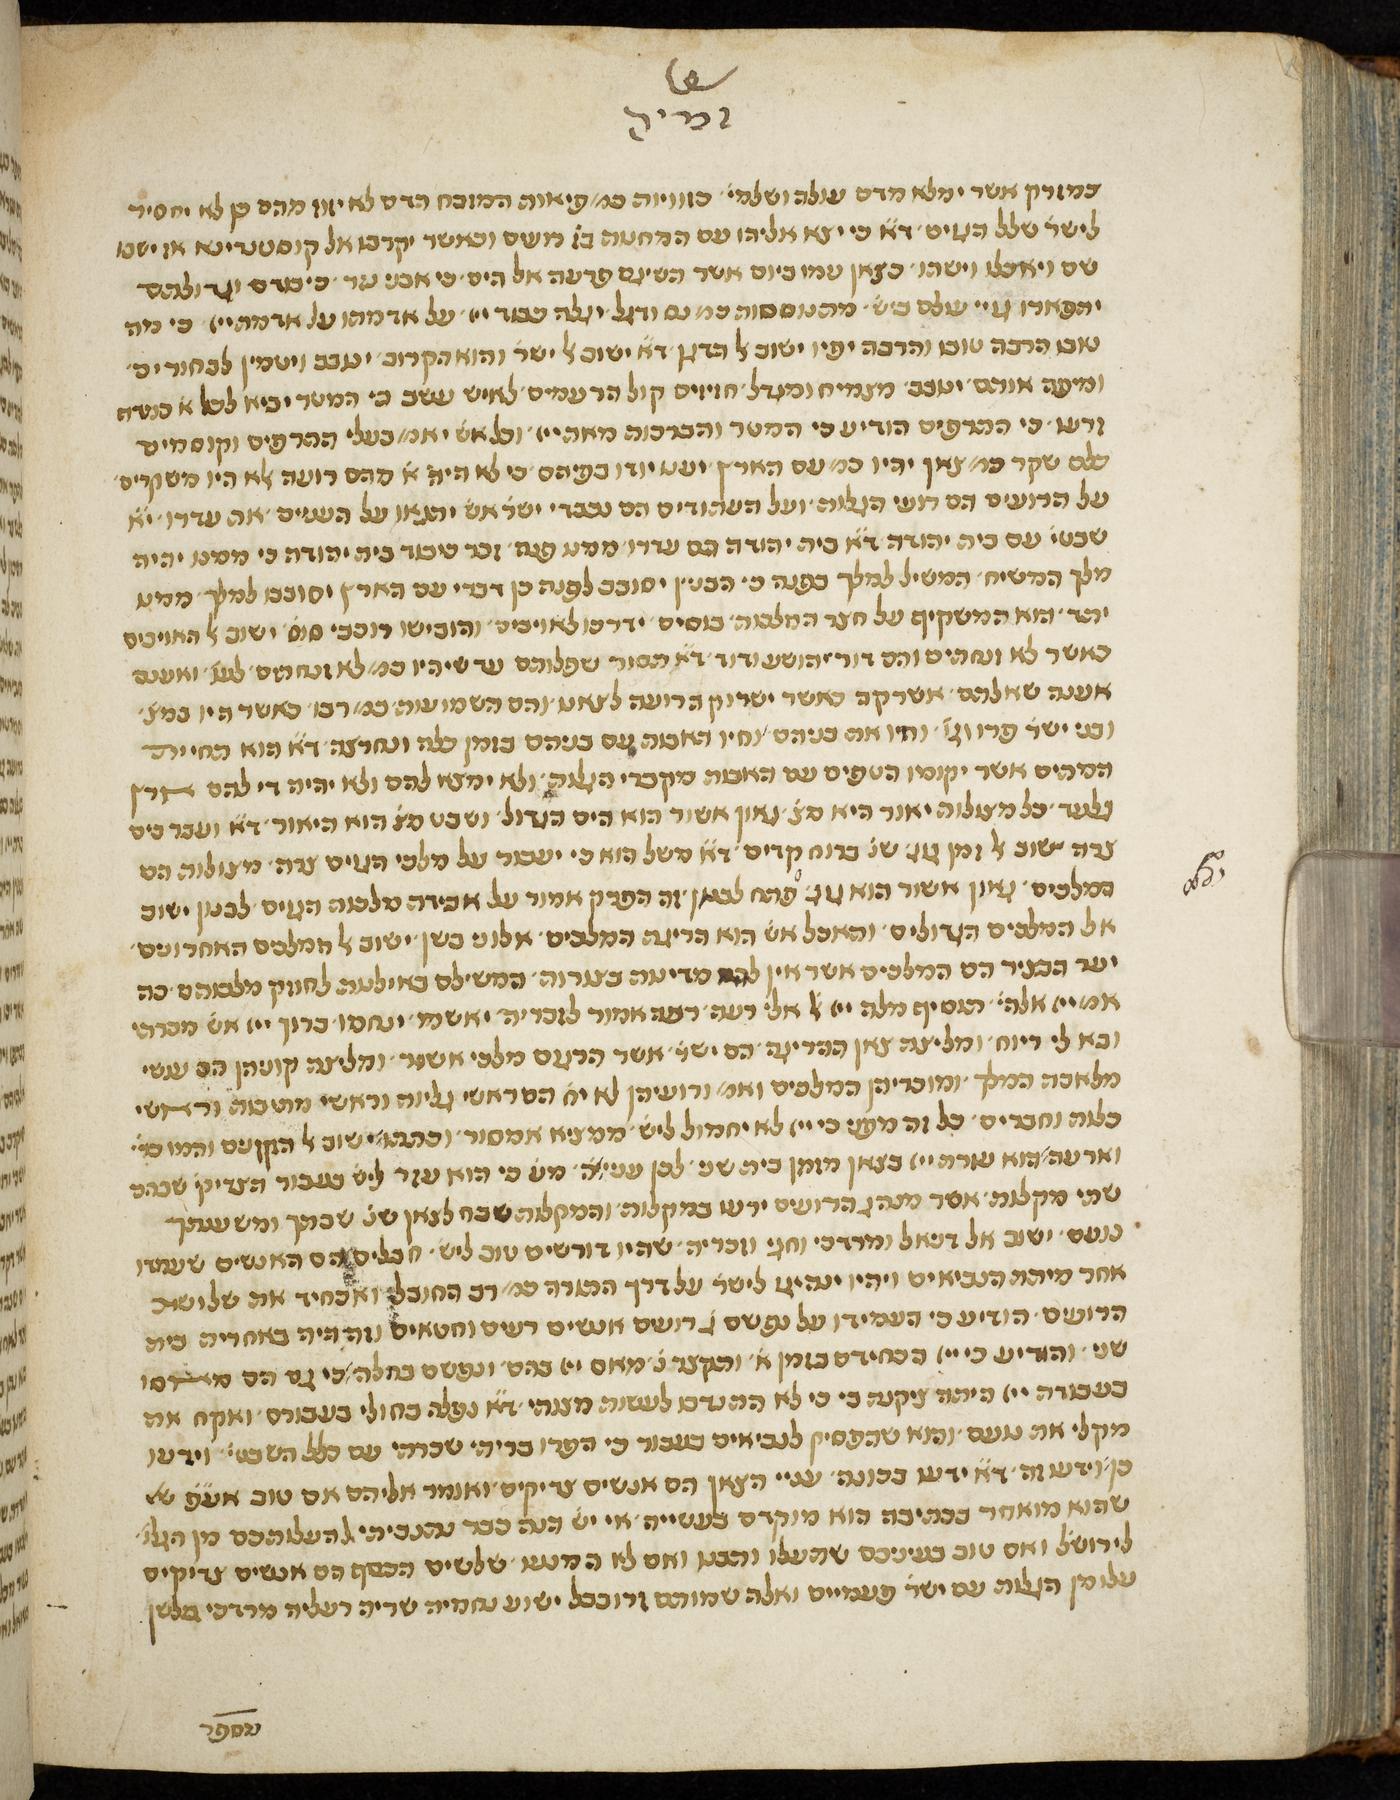 כמזרק אשר ימלא מדם עולה ושלמי׳ כזוויות כמ׳ פיאות המזבח הדם לא יזוז מהם כן לא יחסיר
לישר׳ שלל הגוים׳ ד״א כי יצא אליהו עם המחנה בן מושם וכאשר יקרבו אל קוסטנטינא אז ישבו
שם ויאכלו וישתו׳ כצאן עמו ביום אשר השיגם פרעה אל הים׳ כי אבני נזר׳
יתפארו גויי עולם ביש׳ מתנוססות כמ׳ נס ודגל׳ יגלה כבוד ייי׳ על אדמתו על אדמת ייי׳ כי מה
טובו הרבה טובו והרבה יפיו ישוב ל׳ הדגן׳ ד״א ישוב ל׳ ישר׳ והוא הקרוב׳ ינובב ויטמין לבחורים׳
ומיעה אותם׳ ינובב׳ מצמיח ומגדל׳ חזיזים קול הרעמים׳ לאיש עשב כי המטר יביא לכל א׳
זרעו׳ כי התרפים הודיע כי המטר והברכות מאת ייי׳ וכל אש׳ יאמ׳ בעלי התרפים וקוסמים
כלם שקר כמ׳ צאן יהיו כמ׳ עם הארץ יענו יודו בפיהם׳ כי לא היה א׳ מהם רועה לא היו משקרים׳
על הרועים הם רועי הגלות׳ ועל העתודים הם נכבדי ישר׳ אש׳ יתגאו על העניים׳ את עדרו׳ י״א
שבטי׳ עם בית יהודה ד״א בית יהודה הם עדרו׳ ממנו פנה׳ זכר עבור בית יהודה כי ממנו יהיה
מלך המשיח׳ המשיל למלך כפנה כי הבנין יסובב לפנה כן דברי עם הארץ יסובבו למלך׳ ממנו
יתד׳ הוא המשקיף על חצר המלכות׳ בוסים׳ ידרכו לאויבים׳ והובישו רוכבי סוס׳ ישוב ל׳ האויבים
כאשר לא זנחתים והם דור יהושע ודוד׳ ד״א תסור שפלותם עד שיהיו כמ׳ לא זנחתים׳ ואענם
אענה שאלתם׳ אשרקה כאשר ישרוק הרועה לצאנו׳ והם השמועות׳ כמ׳ רבו׳ כאשר היו במצ׳
ובני ישר׳ פרו וגו׳׳ וחיו את בניהם׳ וחיו האבות עם בניהם בזמן כלה ונחרצה׳ ד״א הוא תחיית
המתים אשר יקומו הטפים עם האבות מקברי הגלות׳ ולא ימצא להם ולא יהיה די להם ארץ
גלעד׳ כל מצולות יאור היא מצ׳׳ גאון אשור הוא הים הגדול׳ ושבט מצ׳ הוא היאור׳ ד״א ועבר בים
צרה ישוב ל׳ זמן גוג׳ שנ׳ ברוח קדים׳ ד״א משל הוא כי יעבור על מלכי הגוים צרה׳ מצולות הם
המלכים׳ גאון אשור הוא גוג׳ פתח לבנון׳ זה הפרק אמור על אבידה מלכות הגוים׳ לבנון ישוב
אל המלכים הגדולים׳ ותאכל אש הוא הריגת המלכים׳ אלוני בשן׳ ישוב ל׳ המלכים האחרונים׳
יער הבציר הם המלכים אשר אין להם מדינות בצורות׳ המשילם באילנות לחוזק מלכותם׳ כה
אמ׳ ייי אלהי׳ תוסיף מלת ייי ל׳ אלי׳ רעה׳ רעה אמור לזכריה׳ יאשמו׳ ינחמו׳ ברוך ייי אש׳ מכרתי
ובא לי ריוח׳ ומליצת צאן ההריגה׳ הם ישר׳׳ אשר הרגום מלכי אשור׳ ומליצת קוניהן הם עושי
מלאכת המלך׳ ומוכריהן המלכים ואמ׳ ורועיהן לא יח׳ הם ראשי גליות וראשי מתיבות וראשי
כלות וחברים׳ כל זה מפני כי ייי לא יחמול ליש׳ ממציא אמסור׳ וכתתו׳ ישוב ל׳ הזקנים והמוכר׳׳
וארעה׳ הוא עזרת ייי בצאן מזמן בית שני׳ לכן עניי׳ הא׳ מש׳ כי הוא עזר ליש׳ בעבור הצדיק׳
שתי מקלות׳ אשר מנהג הרועים ירעו במקלות׳ והמקלות שבח לצאן שנ׳ שבתך ומשענתך
נועם׳ ישוב אל דניאל ומרדכי וחגי וזכריה׳ שהיו דורשים טוב ליש׳׳ חבלים הם האנשים שעמדו
אחר מיתת הנביאים ויהיו ינהיגו לישר׳ על דרך התורה כמ׳ רב החובל׳ ואכחיד את שלושת
הרועים׳ הודיע כי העמידו על נפשם ג׳ רועים אנשים רעים וחטאים וזה היה באחרית בית
שני׳ והודיע כי ייי הכחידם בזמן א׳׳ ותקצר נ׳׳ מאס ייי בהם׳ ונפשם בחלה׳ כי גם הם מאסו
בעבודת ייי היתה ציקנה בי כי לא התנדבו לעשות מצותי׳ ד״א נפלה כחולי בעבורם׳ ואקח את
מקלי את נועם׳ והוא שהפסיק לנביאים בעבור כי הפרו בריתי שכרתי עם כלל השבטי׳׳ וידעו
כן׳ וידעו זה׳ ד״א ידעו בכוונה׳ עניי הצאן הם אנשים צדיקים׳ ואומר אליהם אם טוב אע״פ
שהוא מואחר בכתיבה הוא מוקדם בעשייה׳ אי יש׳ הנה כבר נתנבאתי להעלותכם מן הגלו׳
לירושל׳ ואם טוב בעיניכם שתעלו והבו ואם לא המנעו׳ שלשים הכסף הם אנשים צדיקים
עלו מן הגלות עם ישר׳ פעמיים ואלה שמותם זרובבל ישוע נחמיה שריה רעליה מרדכי בלשן
מספר